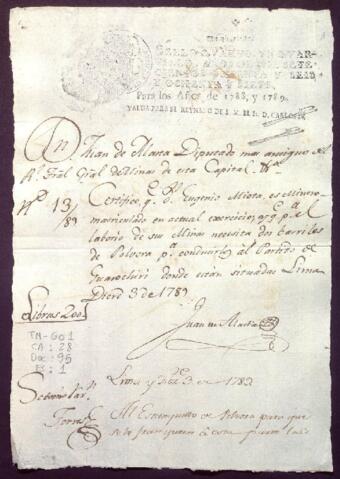 SELLO QVARTO, VN QVAR-
TILLO, AÑOS DE MIL SETE-
CIENTOS OCHENTA Y SEIS
Y OCHENTA Y SIETE.
Para los Años de 1788, y 1789.
VALGA PARA EL REYNADO DE S. M. EL S. D. CARLOS IV.
Dn Juan de Marta Diputado mas antiguo del
Rl. Tral. Gral de Minas de esta Capital &a.
No 13/89
Certifico q. Dn. Eugenio Miota, es Minero
matriculado en actual exercicio, y q. pa. el
laborio de sus Minas necesita dos barriles
de Polvora pa. conducirlos al Partido de
Guarochiri donde están situadas Lima
Dice 3 de 1789
Libras 200
Juan de Marta
TM-GO 1
CA: 28
Doc: 95
F: 1
Lima y Dice. 3 de 1789
Al Estanquero de Polvora para que